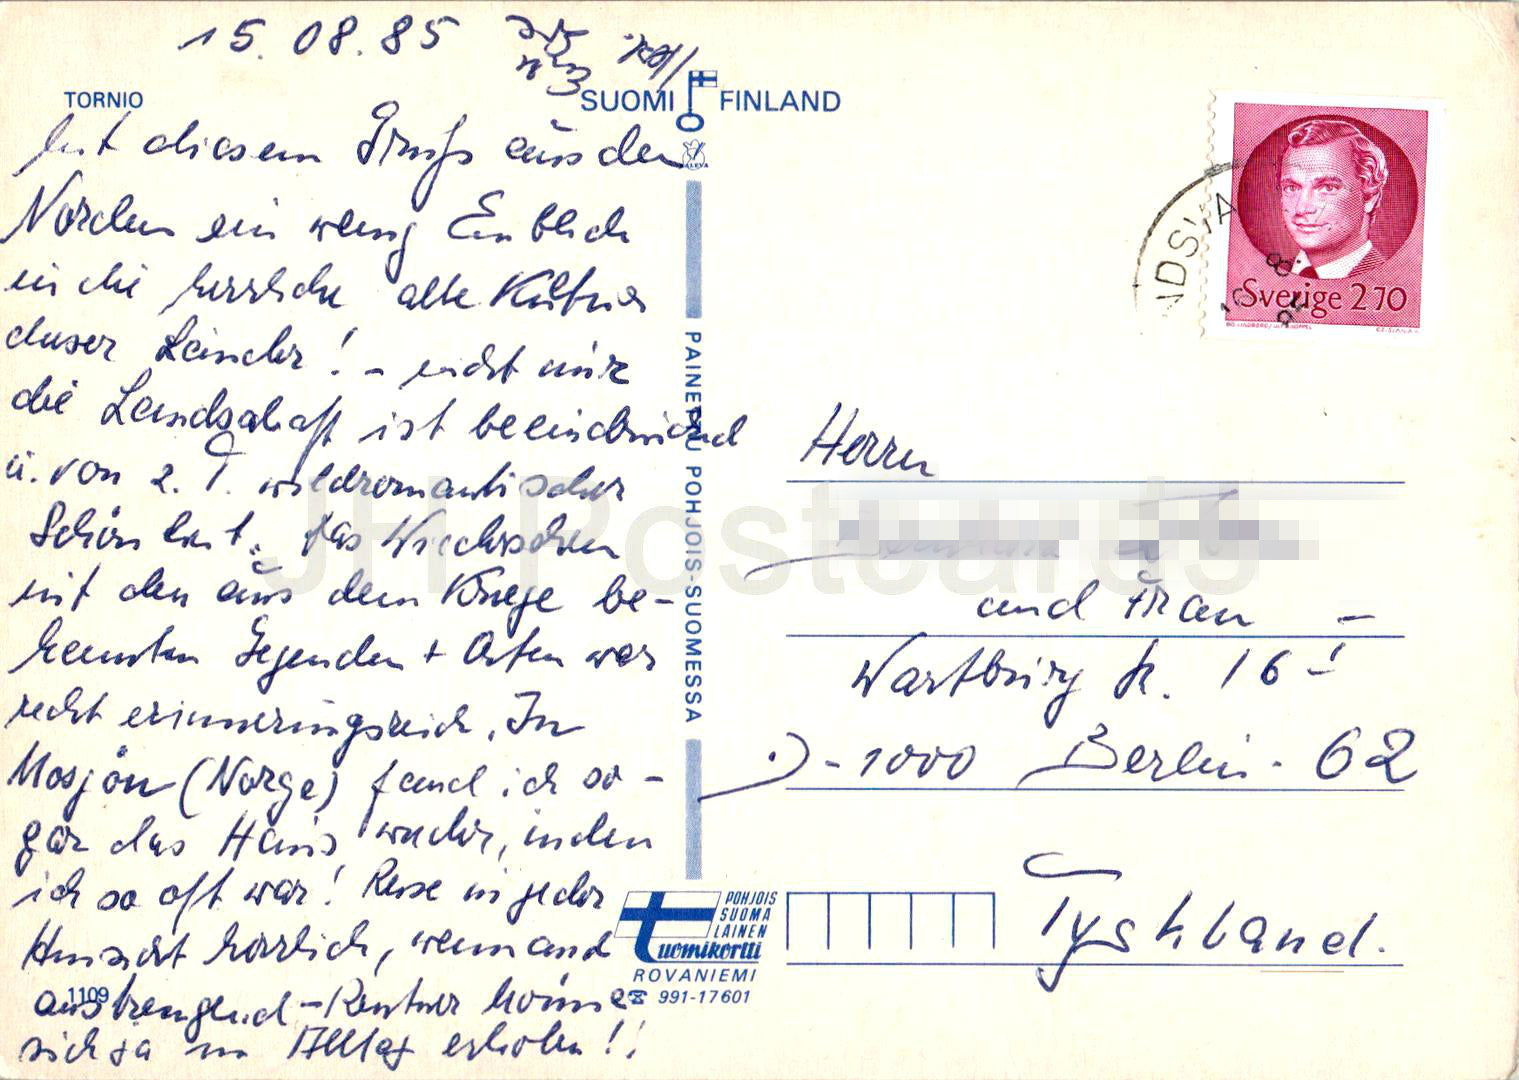 15.08.85
TORNIO
SUOMI FINLAND
Mit diesem Gruß aus dem
Norden ein wenig Einblick
in die herrliche alte Kultur
dieser Länder! - nicht nur
die Landschaft ist beeindruckend
u. von z. T. wildromantischer
Schönheit. Das Wiedersehen
mit den aus dem Kriege be-
kannten Gegenden + Orten war
recht erinnerungsreich. In
Mosjön (Norge) fand ich so-
gar das Haus wieder, in dem
ich so oft war! Reise in jeder
Hinsicht herrlich, wenn auch
anstrengend - Rentner können
sich ja im Alltag erholen!!
1109
PAINETTU POHJOIS-SUOMESSA
POHJOIS
SUOMA
LAINEN
tuomikortti
ROVANIEMI
☎ 991-17601
Sverige 270
Herrn
und Frau
Wartburg str. 16 I
D-1000 Berlin - 62
Tyskland.
JH Postcards